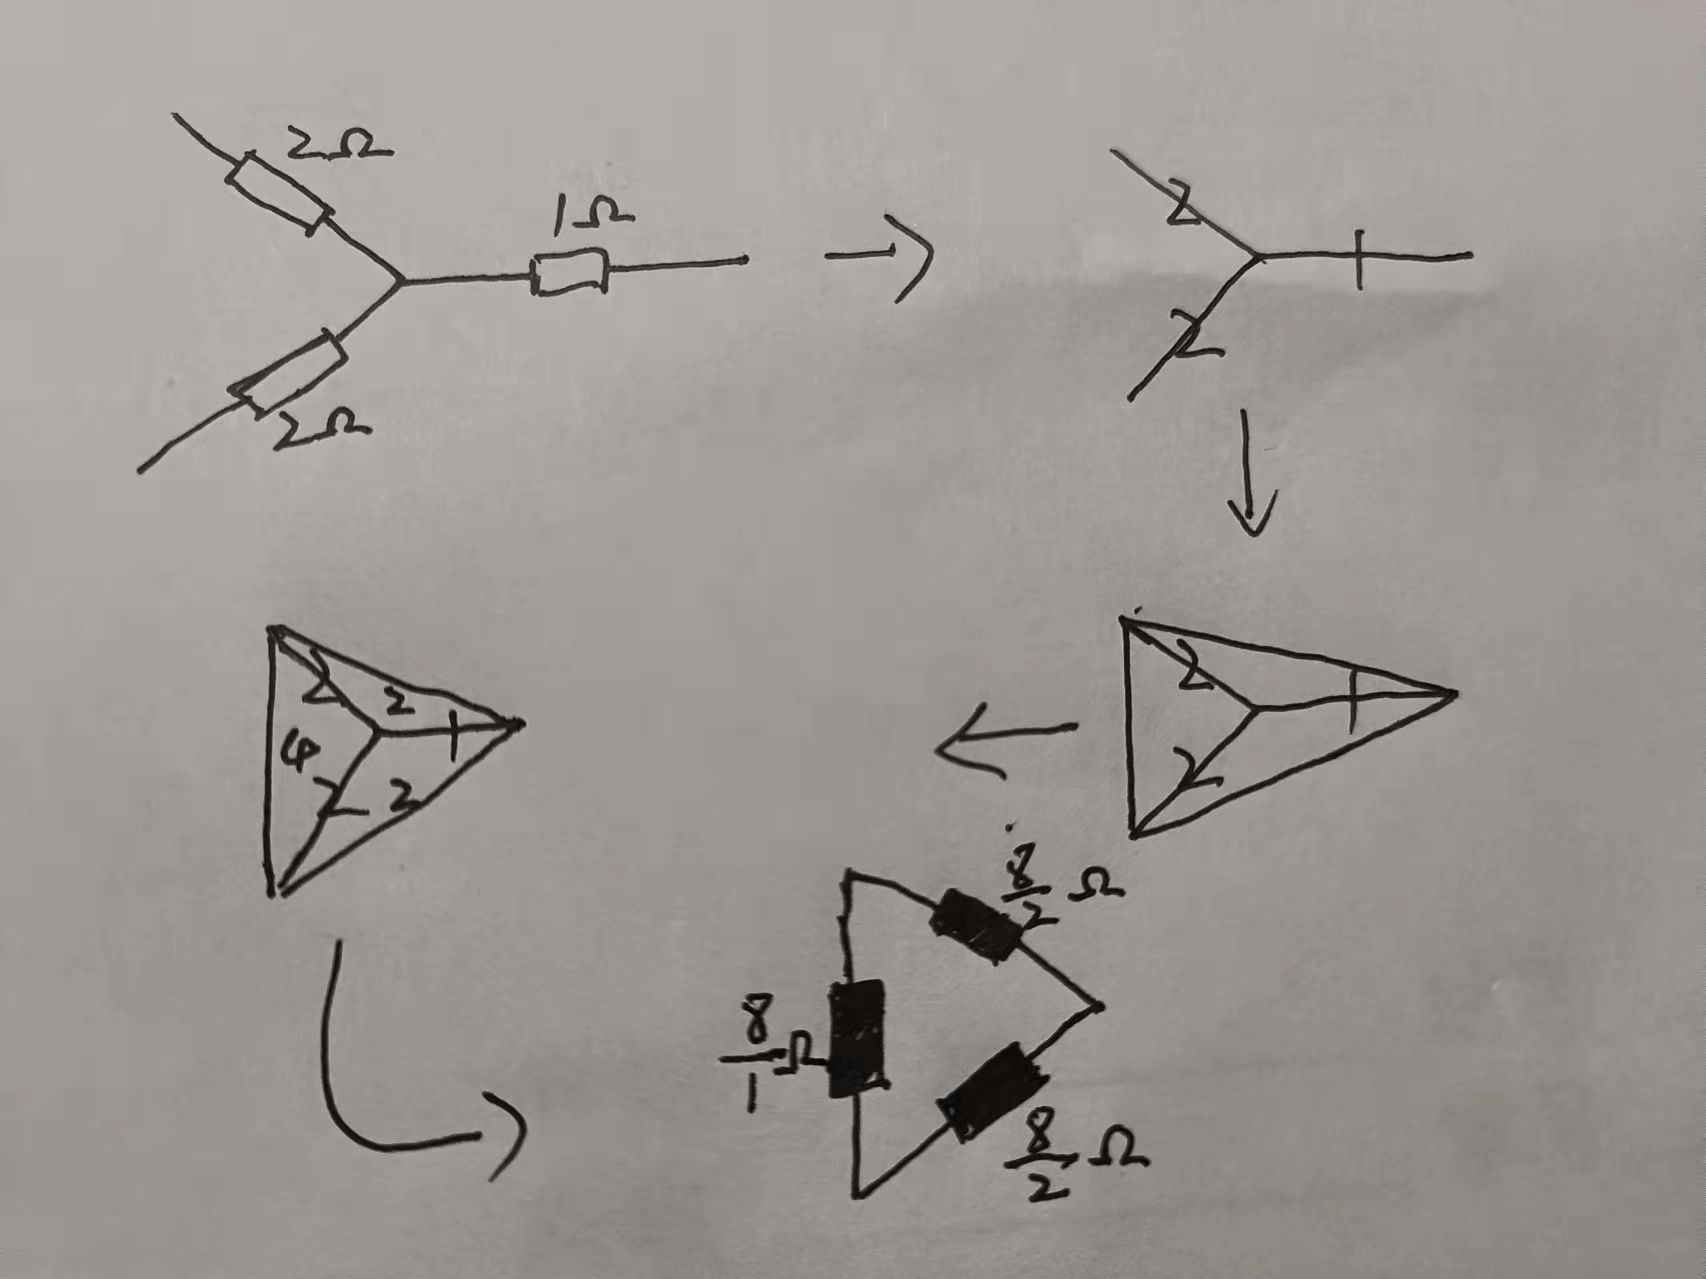 2Ω
1Ω
2Ω
2
1
2
2
2
1
4
2
2
2
1
2
8/2 Ω
8/1 Ω
8/2 Ω